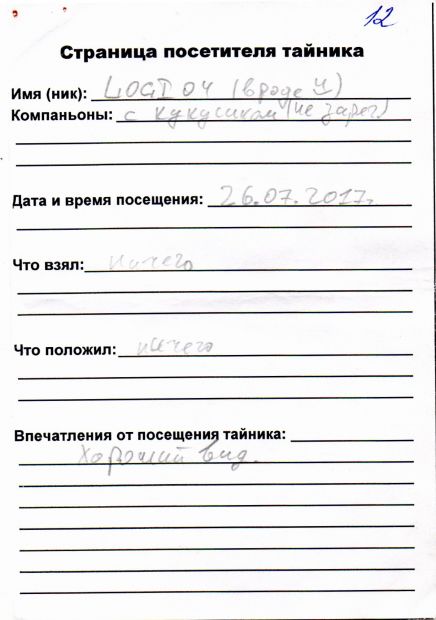 12
Страница посетителя тайника
Имя (ник): LIOGI 04 (вроде Ч)
Компаньоны: с кукусиком (не зарег.)
Дата и время посещения: 26.07.2017.
Что взял: ничего
Что положил: ничего
Впечатления от посещения тайника:
Хороший вид.